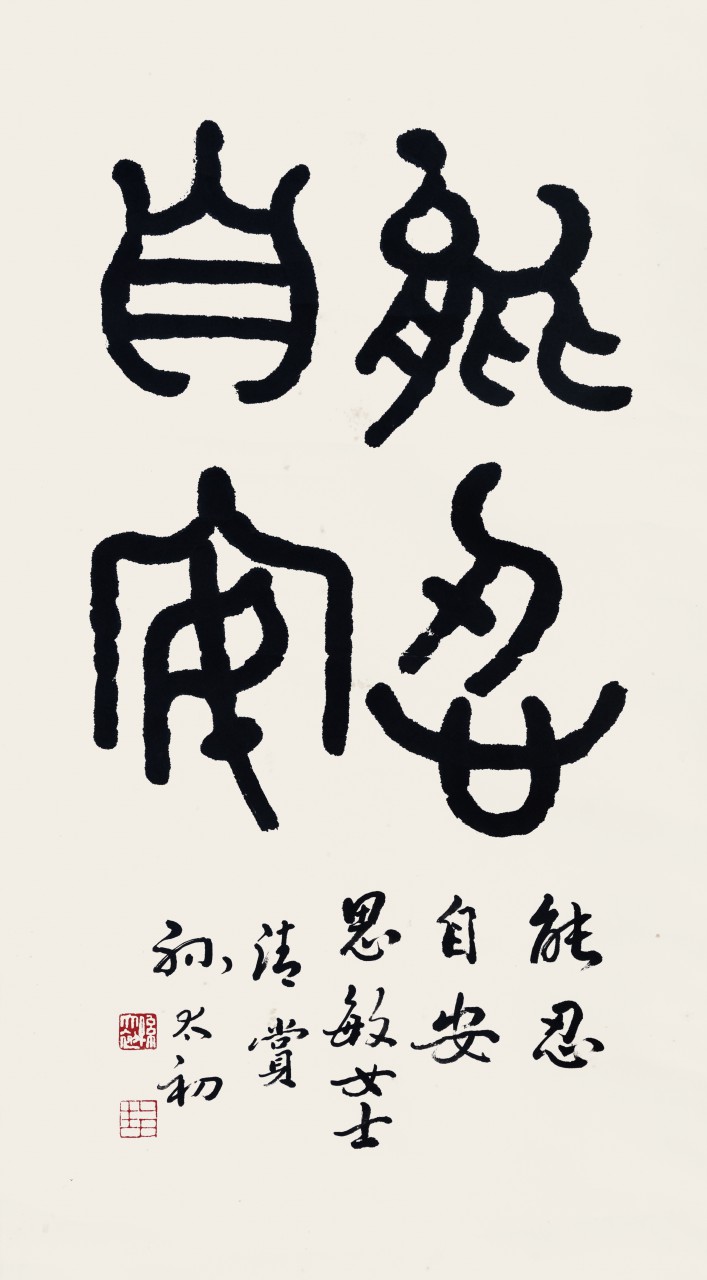 能忍
自安
能忍
自安
思敏女士
清賞
孙太初